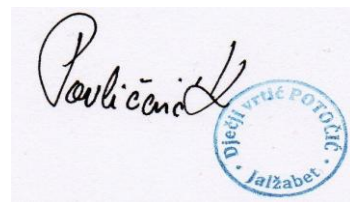 Pavličanić
Dječji vrtić POTOČIĆ
Jalžabet